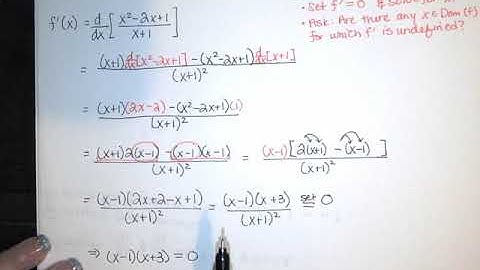 • Set f' = 0 & solve for x.
• Ask: Are there any x ∈ Dom(f) for which f' is undefined?
f'(x) = d/dx [ (x²-2x+1)/(x+1) ]
= ( (x+1) d/dx[x²-2x+1] - (x²-2x+1) d/dx[x+1] ) / (x+1)²
= ( (x+1)(2x-2) - (x²-2x+1)(1) ) / (x+1)²
= ( (x+1)2(x-1) - (x-1)(x-1) ) / (x+1)² = ( (x-1)[2(x+1) - (x-1)] ) / (x+1)²
= ( (x-1)(2x+2-x+1) ) / (x+1)² = ( (x-1)(x+3) ) / (x+1)² set = 0
⇒ (x-1)(x+3) = 0